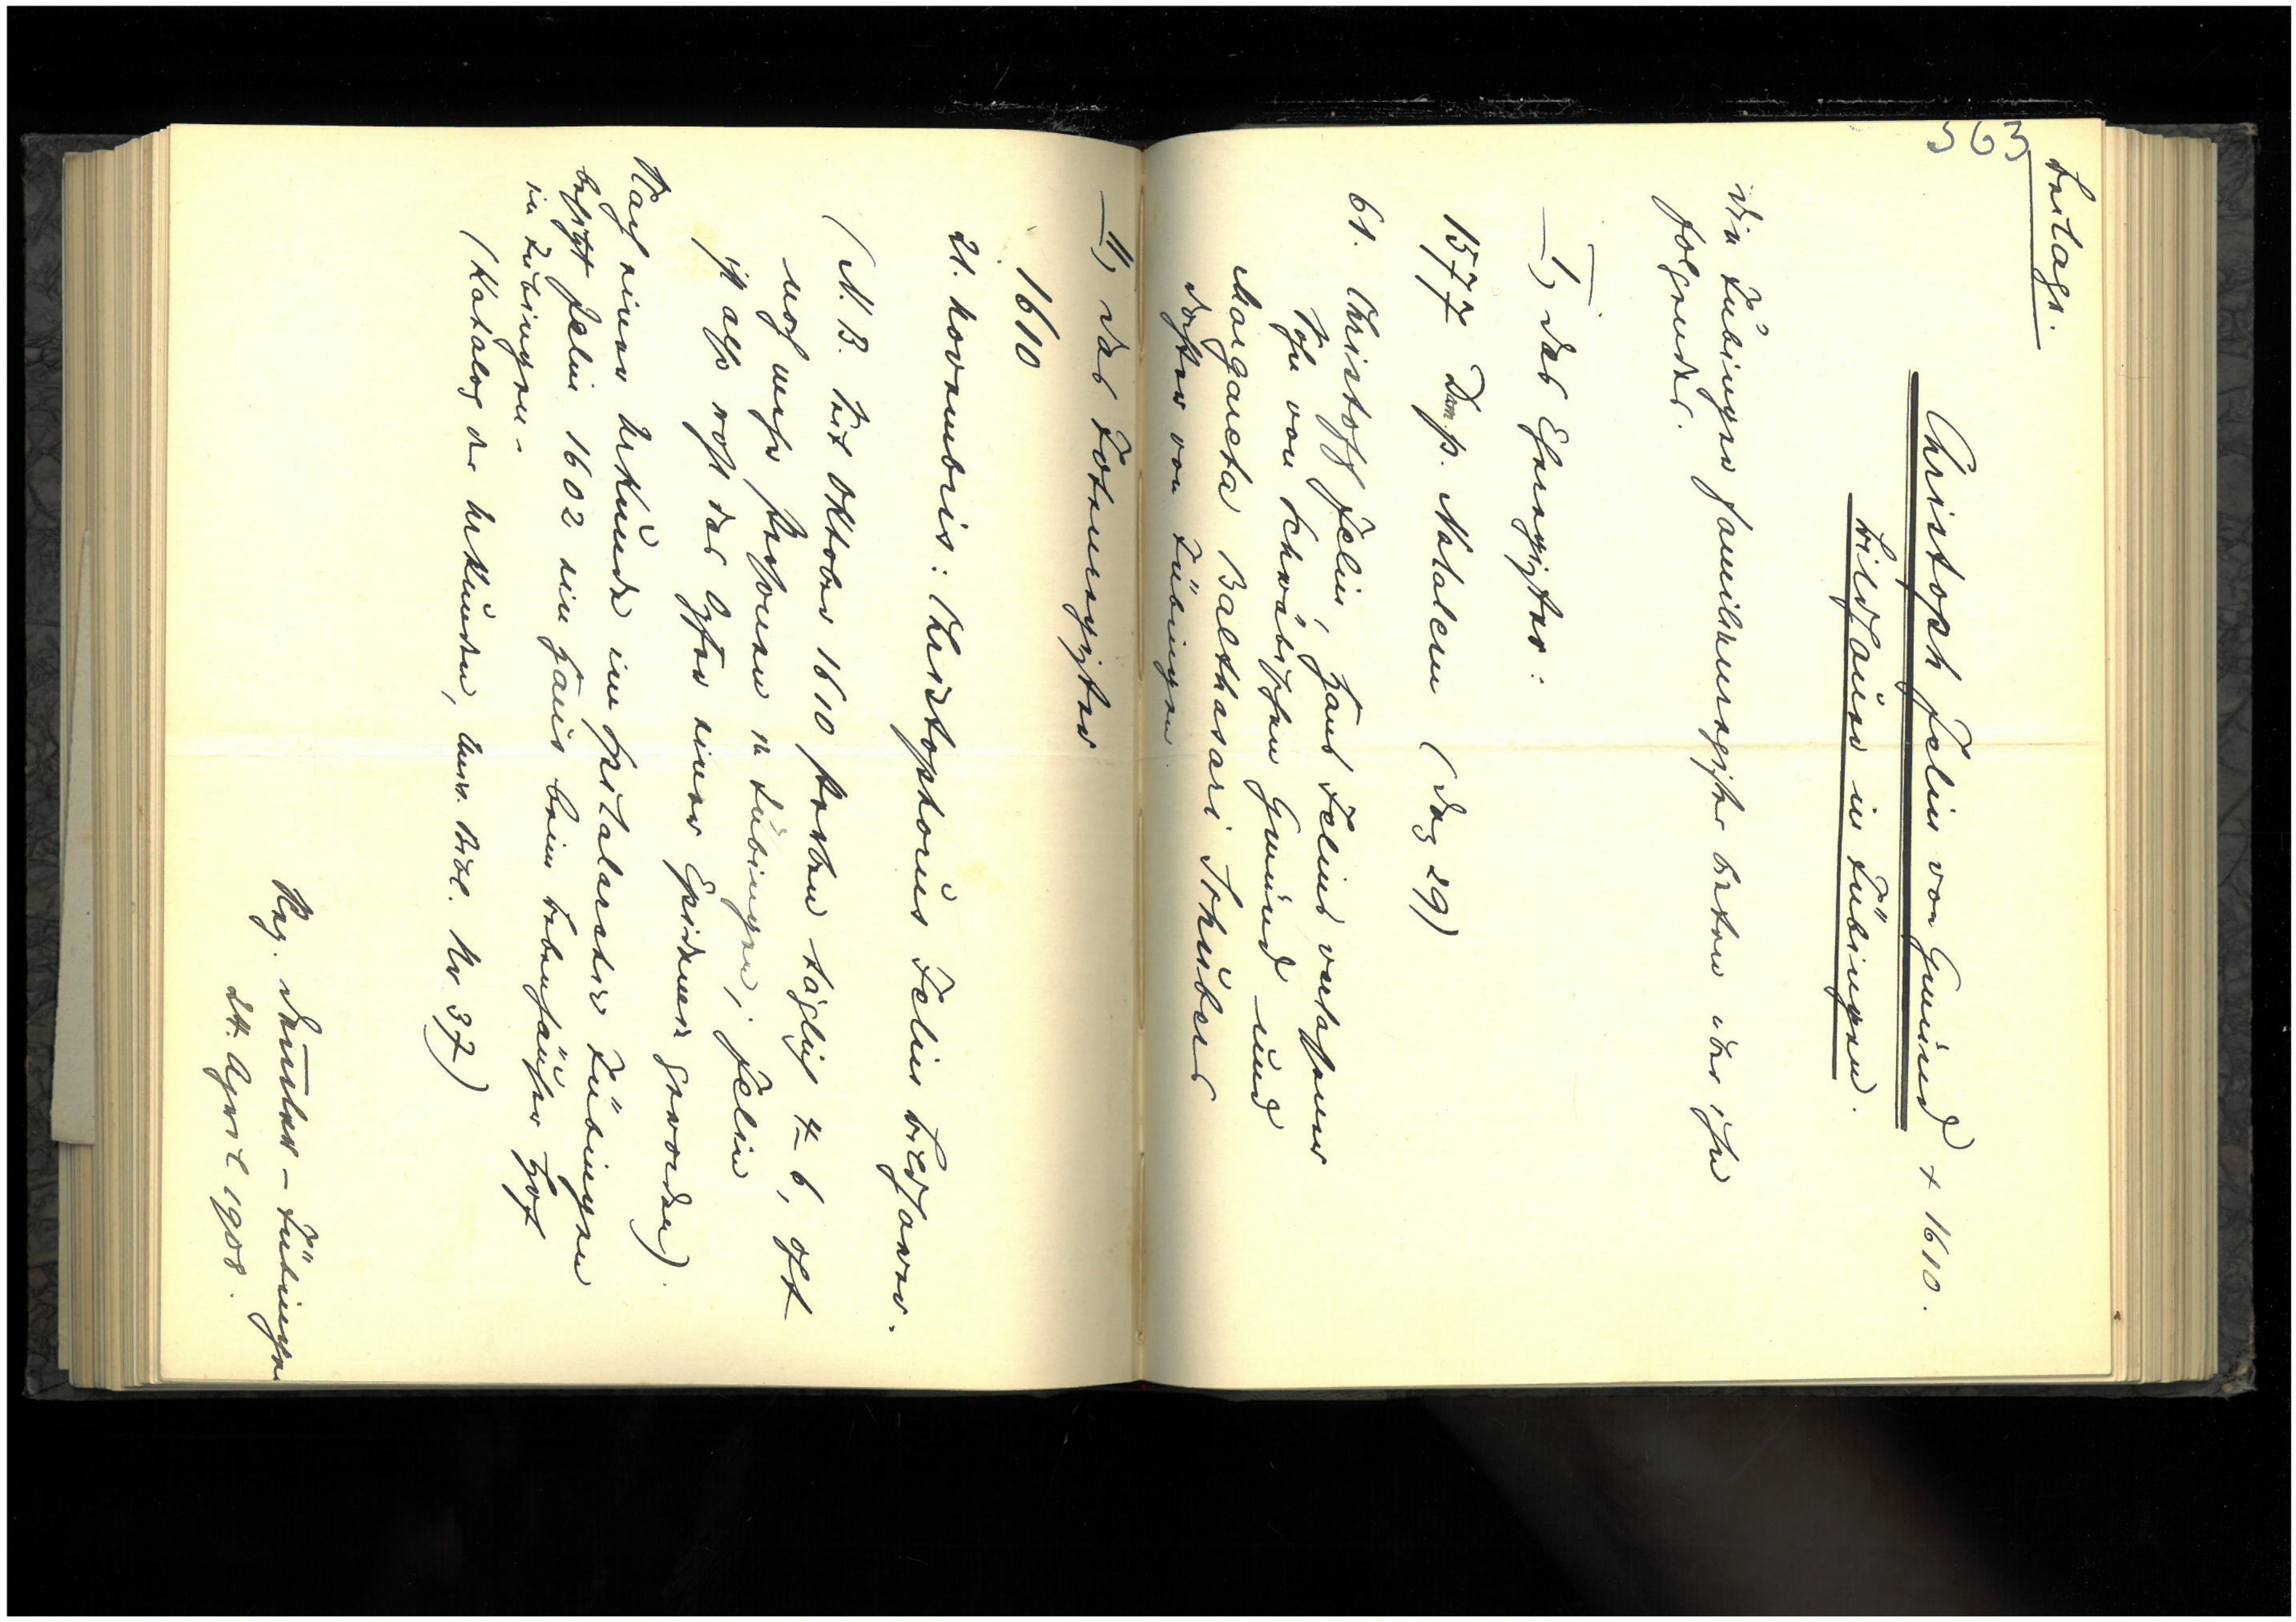 563
Beilage.
Christoph Jelin von Gmünd † 1610.
Bildhauer in Tübingen.
Die Tübinger Familienregister bieten über ihn
folgendes.
I, das Eheregister:
1577 Domp. Natalem (Dez 29)
61. Christoff Jelin, Hans Jelins verlassener
Sohn von Schwäbischen Gmünd und
Margareta Balthasari Schuibers
Tochter von Tübingen
II, das Totenregister
1610
21. Novembris: Christophorus Jelin Bildhawer.
(N. B. Seit Oktober 1610 starben täglich 4–6, oft
noch mehr Personen in Tübingen; Jelin
ist also wohl das Opfer einer Epidemie geworden).
Nach einer Urkunde im Spitalarchiv Tübingen
besitzt Jelin 1602 ein Haus beim Bebenhäuser Hof
in Tübingen.
(Katalog der Urkunden, Univ. Bibl. Nr. 37)
Reg. – Tübingen
24. April 1908.